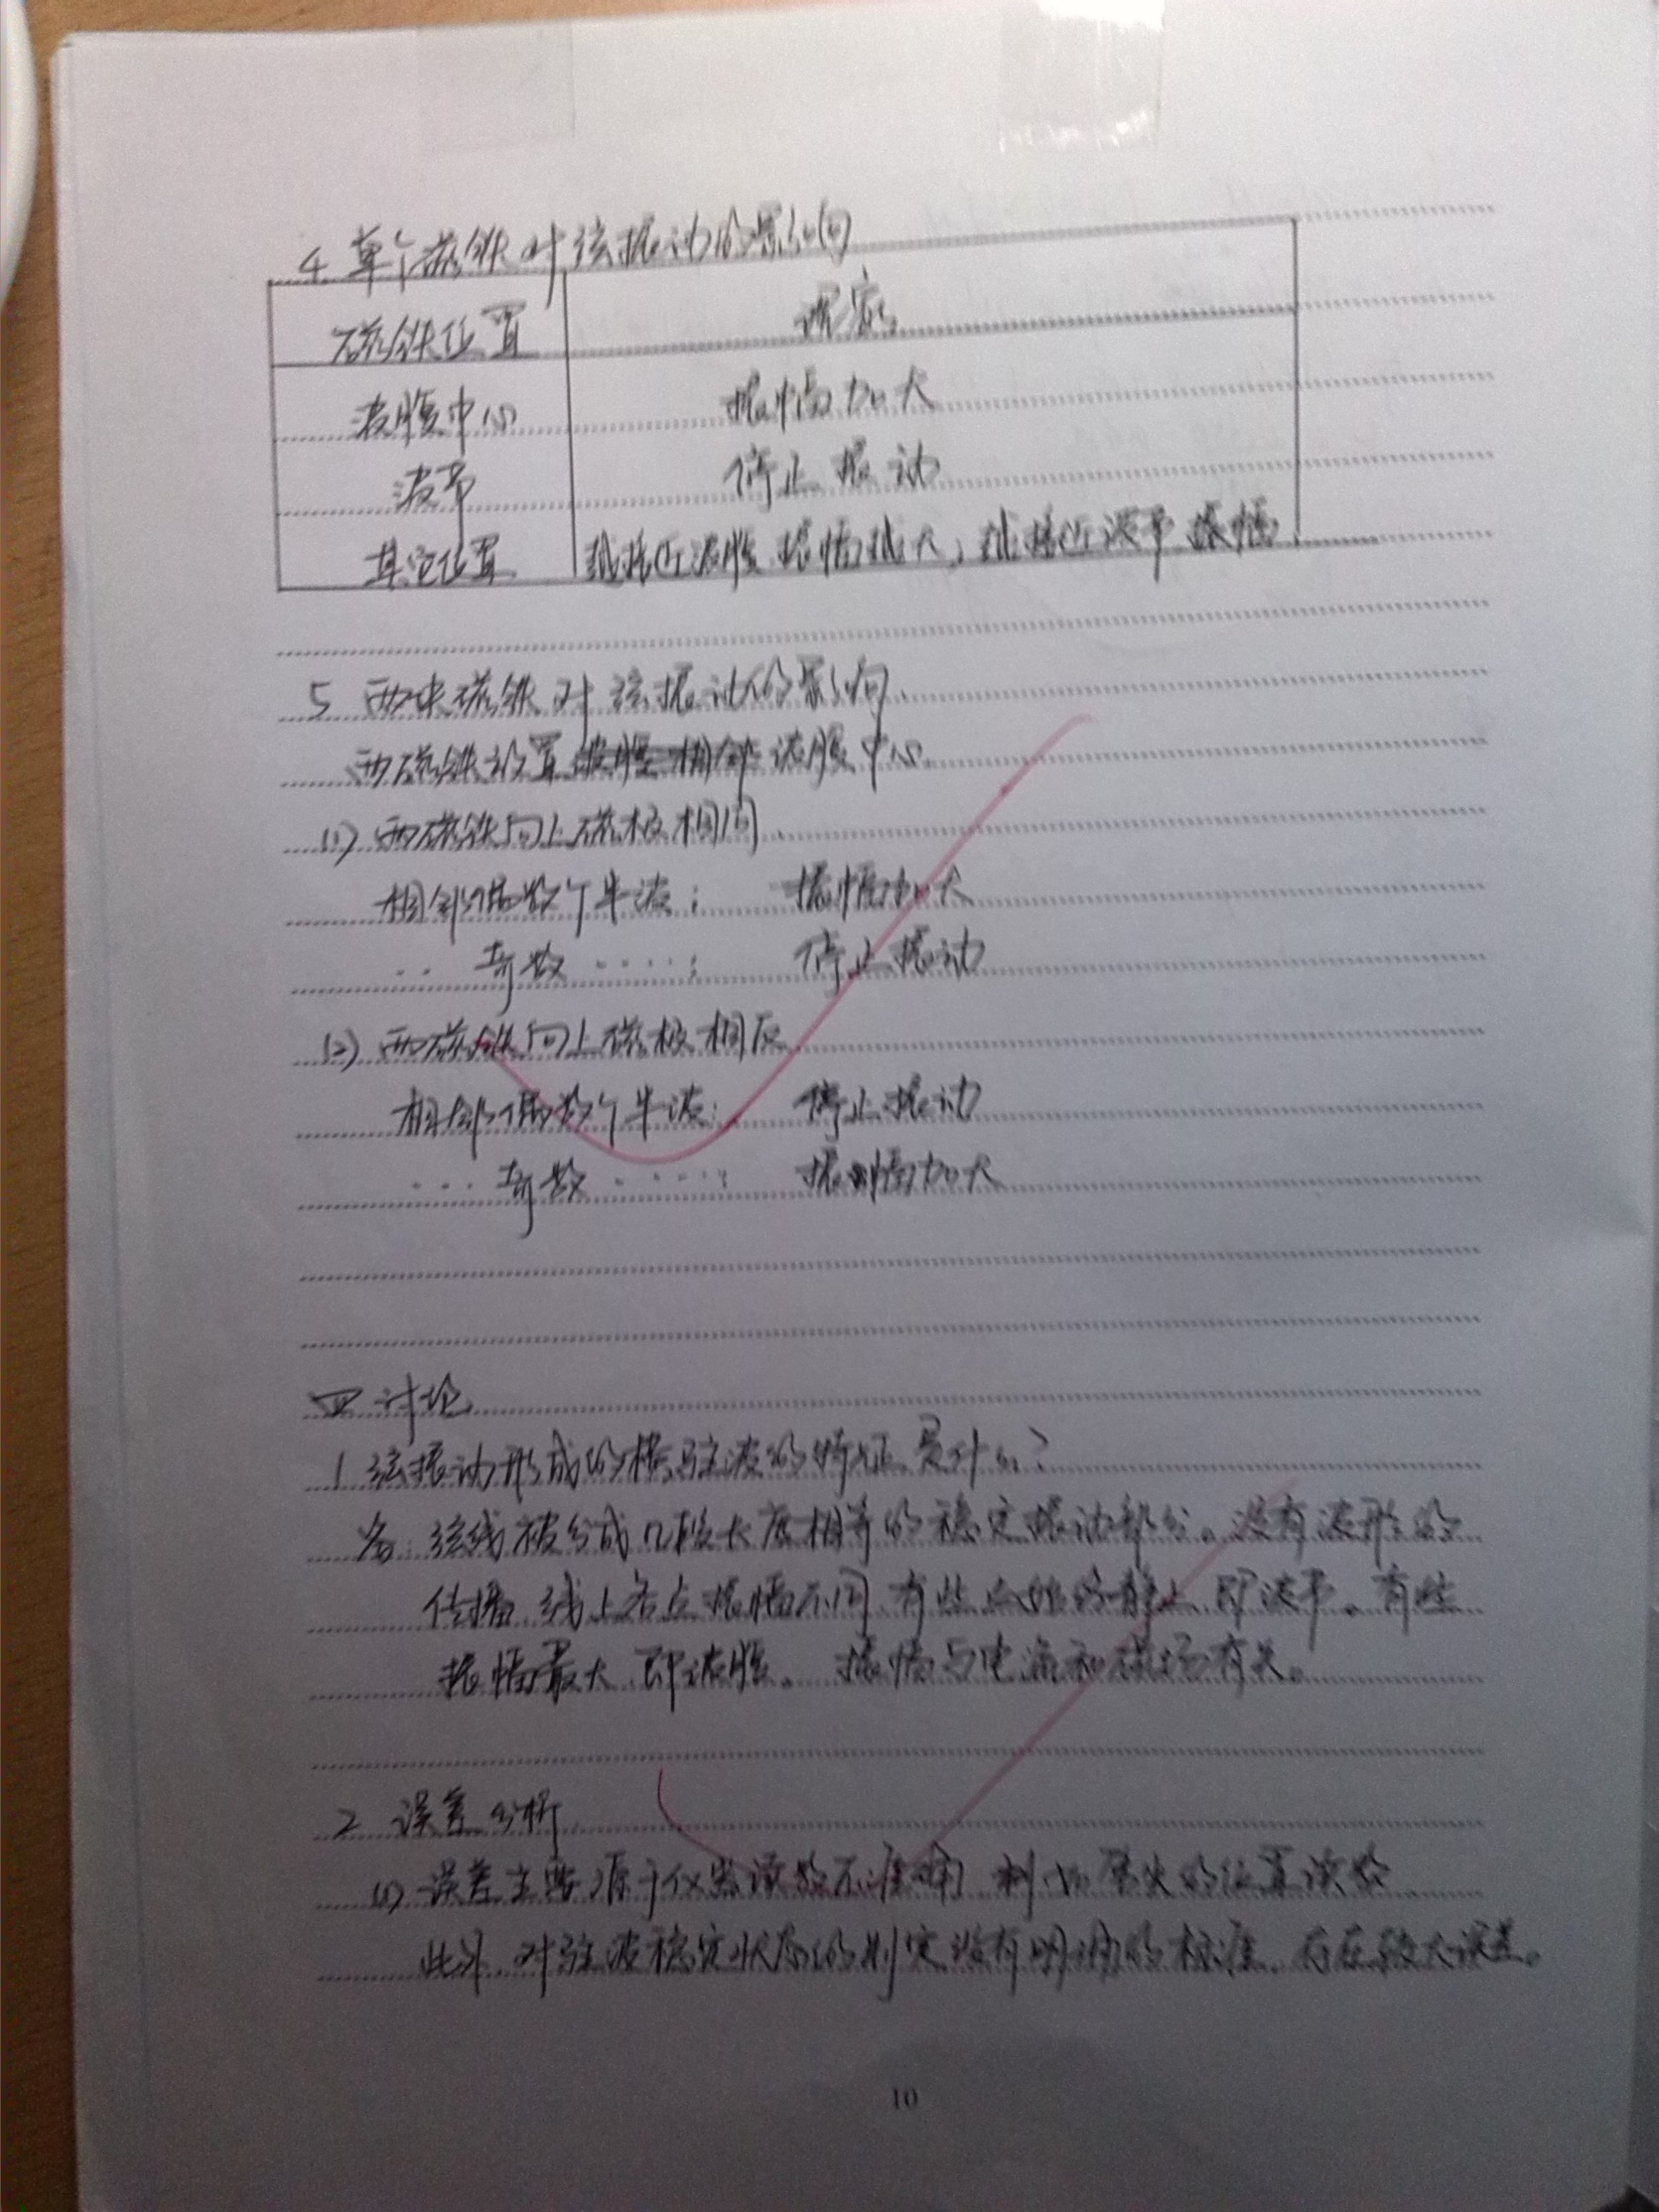 4. 单个磁铁对弦振动的影响
磁铁位置 现象
波腹中心 振幅加大
波节 停止振动
其它位置 越接近波腹 振幅越大, 越接近波节 振幅
5 两块磁铁对弦振动的影响.
两磁铁放置 波腹中心.
(1) 两磁铁向上磁极相同.
相邻偶数个半波: 振幅加大
.. 奇数 ....: 停止振动
(2) 两磁铁向上磁极相反
相邻偶数个半波: 停止振动
... 奇数 ....: 振幅加大
四 讨论
1 弦振动形成的横驻波的特征是什么?
答: 弦线被分成几段长度相等的稳定振动部分。没有波形的
传播 线上各点振幅不同 有些点始终静止 即波节。有些
振幅最大 即波腹。振幅与电流和磁场有关。
2 误差分析
(1) 误差主要源于仪器读数不准确 的位置读数
此外, 对驻波稳定状态的判定没有明确的标准. 存在较大误差。
10